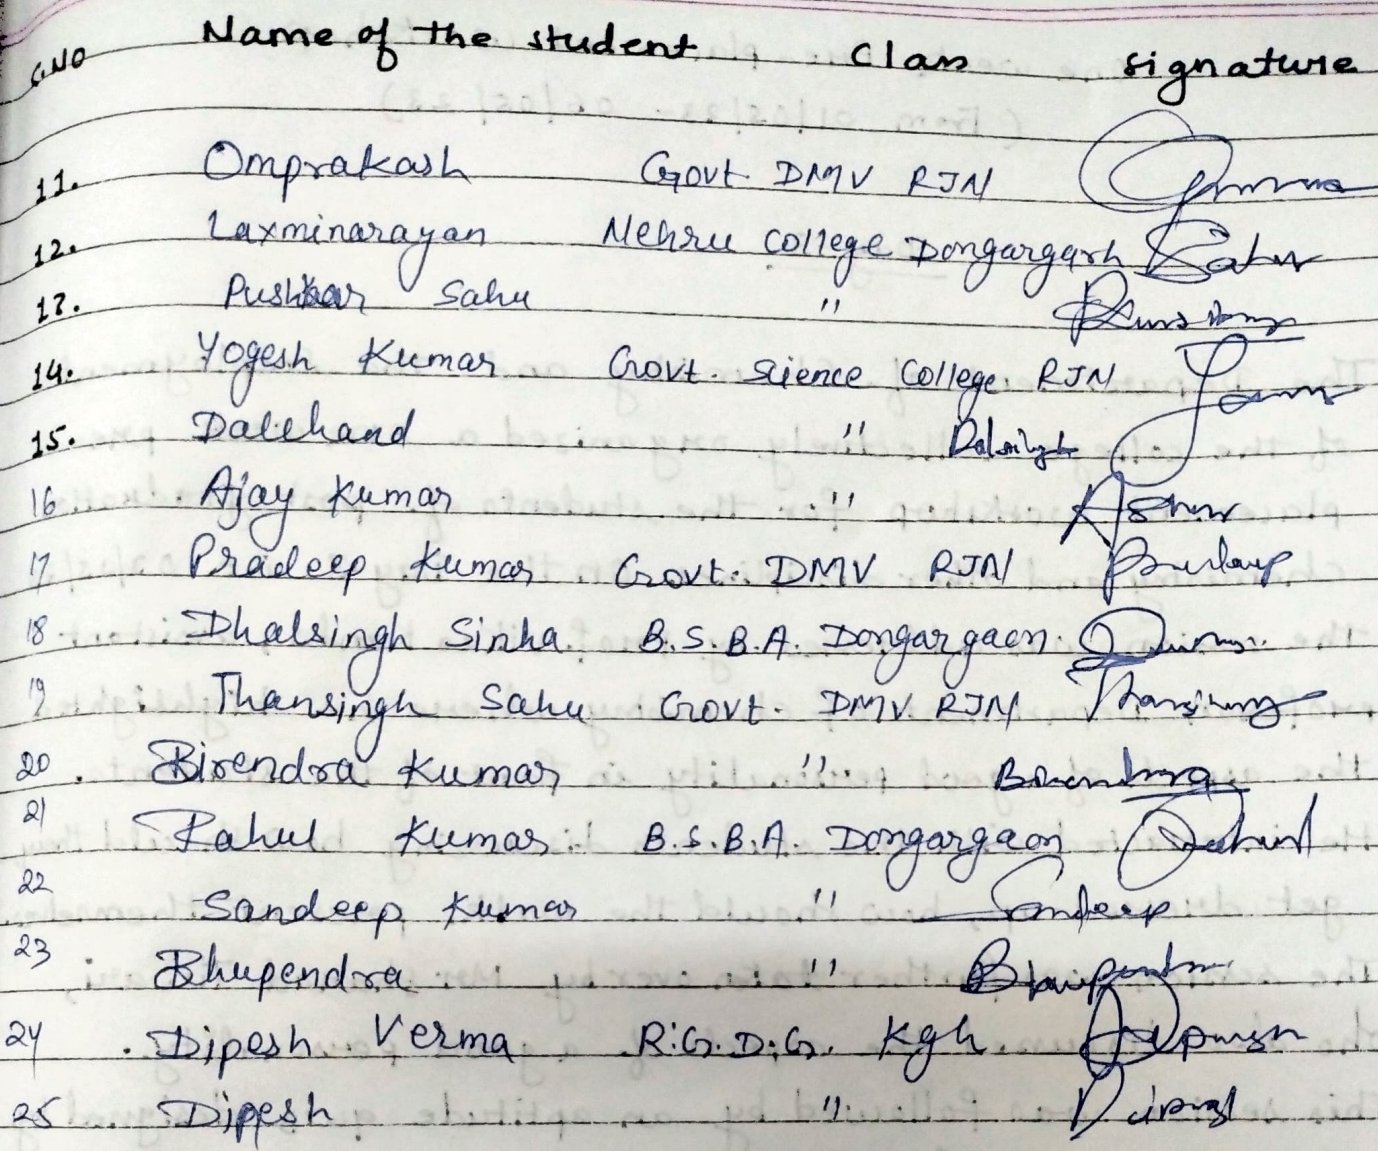 S.NO Name of the student Class signature
11. Omprakash Govt DMV RJN
12. Laxminarayan Nehru College Dongargarh Sahu
13. Pushkar Sahu "
14. Yogesh Kumar Govt. Science College RJN
15. Dalchand " Dalsingh
16 Ajay Kumar "
17 Pradeep Kumar Govt. DMV RJN Pradeep
18 Dhalsingh Sinha B.S.B.A. Dongargaon.
19 Thansingh Sahu Govt. DMV. RJN Thansingh
20. Birendra Kumar " Birendra
21 Rahul Kumar B.S.B.A. Dongargaon
22 Sandeep Kumar " Sandeep
23 Bhupendra " Bhupendra
24 Dipesh Verma R.G.D.G. Kgh
25 Dipesh "